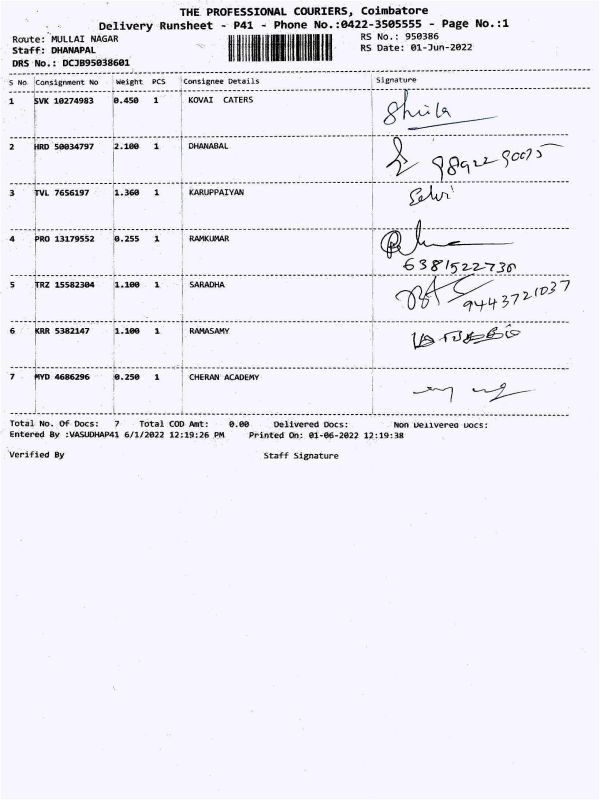 THE PROFESSIONAL COURIERS, Coimbatore
Delivery Runsheet - P41 - Phone No.:0422-3505555 - Page No.:1
Route: MULLAI NAGAR RS No.: 950386
Staff: DHANAPAL RS Date: 01-Jun-2022
DRS No.: DCJB95038601
S No Consignment No Weight PCS Consignee Details Signature
1 SVK 10274983 0.450 1 KOVAI CATERS Shila
2 HRD 50034797 2.100 1 DHANABAL
3 TVL 7656197 1.360 1 KARUPPAIYAN Selvi
4 PRO 13179552 0.255 1 RAMKUMAR
6381522730
5 TRZ 15582304 1.100 1 SARADHA 9443721037
6 KRR 5382147 1.100 1 RAMASAMY
7 MYD 4686296 0.250 1 CHERAN ACADEMY
Total No. Of Docs: 7 Total COD Amt: 0.00 Delivered Docs: Non Delivered Docs:
Entered By :VASUDHAP41 6/1/2022 12:19:26 PM Printed On: 01-06-2022 12:19:38
Verified By Staff Signature